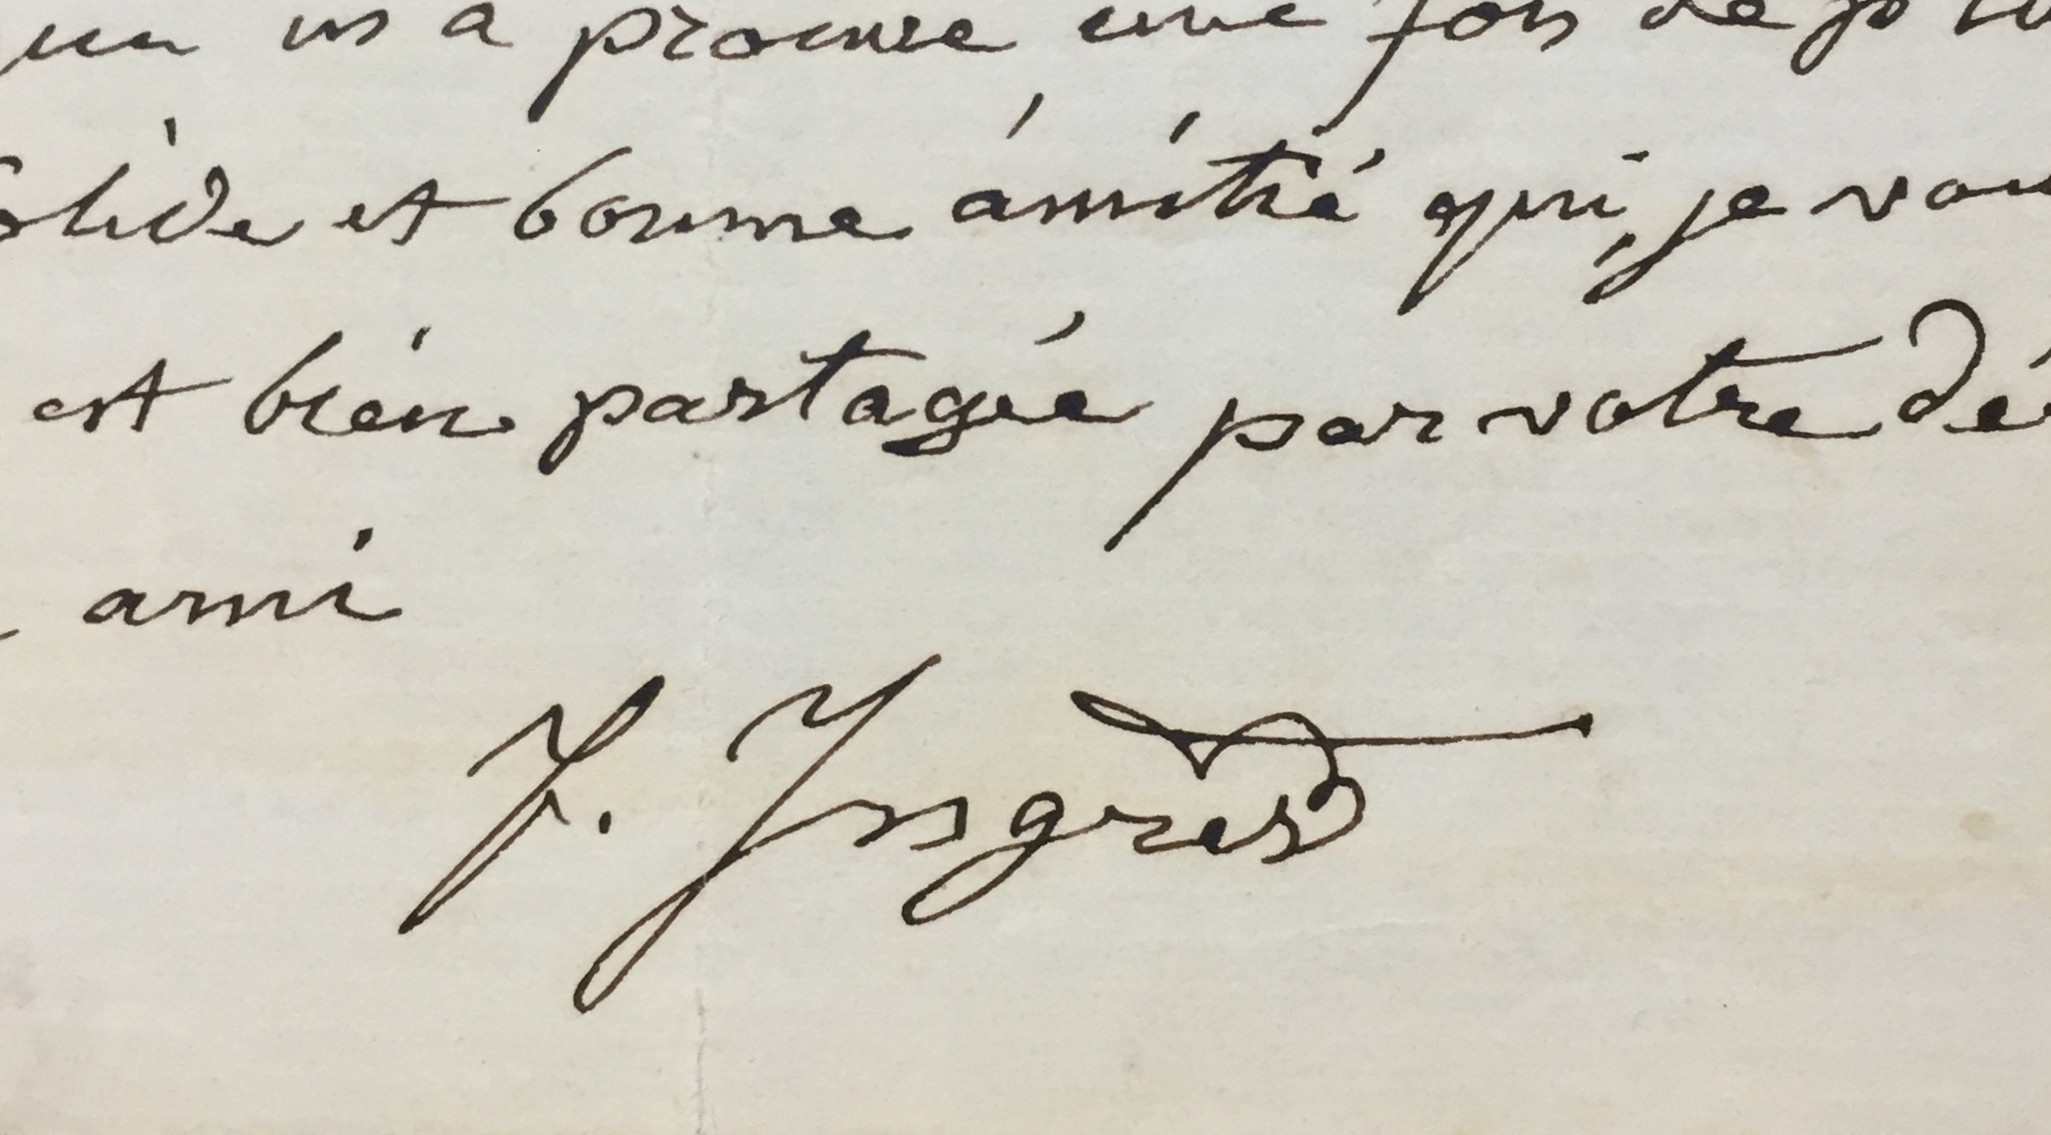 m'a prouvé une fois de plus
solide et bonne amitié qui, je vou
est bien partagée par votre dé
ami
J. Ingres